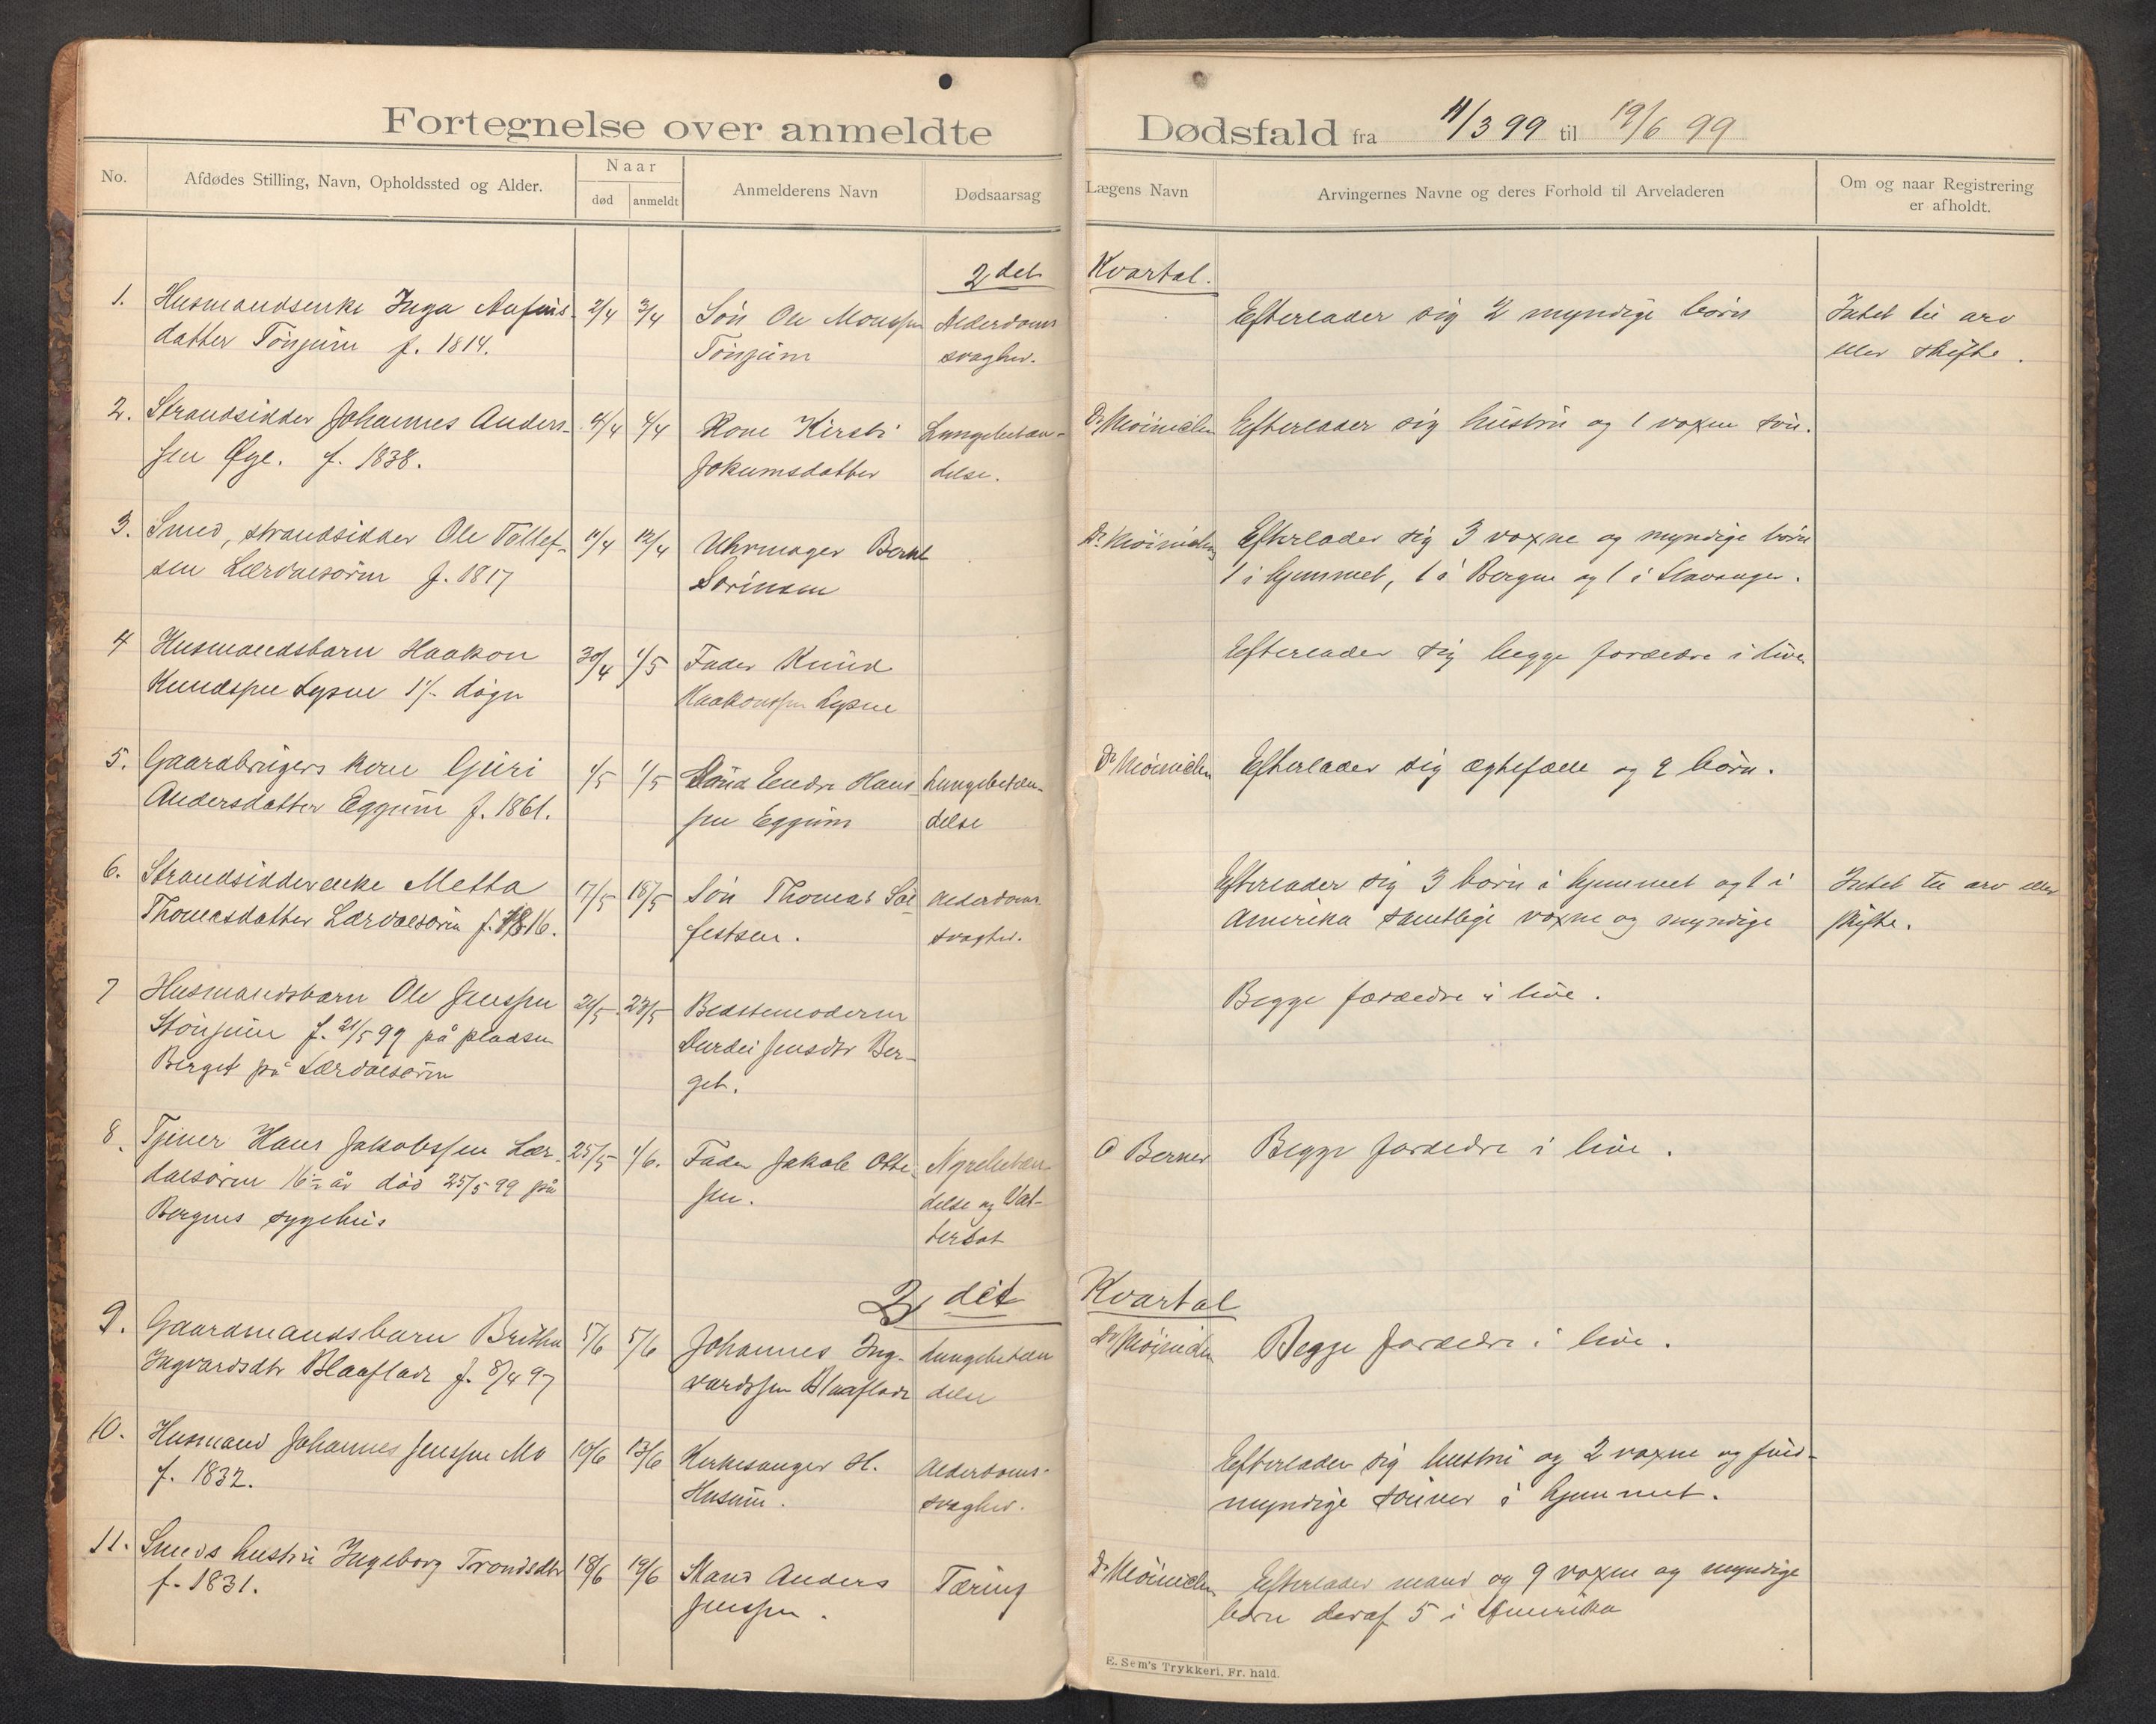 Fortegnelse over anmeldte Dødsfald fra 11/3 99 til 19/6 99
No.
Afdødes Stilling, Navn, Opholdssted og Alder.
Naar
død anmeldt
Anmelderens Navn
Dødsaarsag
Lægens Navn
Arvingernes Navne og deres Forhold til Arveladeren
Om og naar Registrering
er afholdt.
2det Kvartal.
1. Husmandsenke Inga
datter Tönjum f. 1814.
2/4 3/4
Sön Ole Monssen
Tönjum
Alderdoms
svaghed.
Efterlader sig 2 myndige börn
Intet til arv
eller skifte.
2. Strandsidder Johannes Anders-
sen Øye. f. 1838.
4/4 4/4
Kone Kirsti
Jokumsdatter
Lungebetæn-
delse.
Efterlader sig hustru og 1 voxen sön.
3. Smed, strandsidder Ole Tollef-
sen Lærdalsören f. 1817
11/4 12/4
Uhrmager Bernt
Sörensen
Efterlader sig 3 voxne og myndige börn
1 i hjemmet, 1 i Bergen og 1 i Stavanger.
4 Husmandsbarn Haakon
Knudssen Lysne 1/- dögn
30/4 1/5
Fader Knud
Haakonssen Lysne
Efterlader sig begge foreldre i live
5. Gaardbrugers kone Guri
Andersdatter Eggum f. 1861.
1/5 1/5
Endre Hans-
sen Eggum
Lungebetæn-
delse
Efterlader sig ægtefælle og 9 börn.
6. Strandsidderenke Metta
Thomasdatter Lærdalsören f. 1816.
17/5 18/5
Sön Thomas Sol-
festsen.
Alderdoms
svaghed.
Efterlader sig 3 börn i hjemmet og 1 i
Amerika samtlige voxne og myndige
Intet til arv eller
skifte.
7 Husmandsbarn Ole Jenssen
Stönjum f. 21/5 99 på pladsen
Berget på Lærdalsören
21/5 23/5
Bedstemoderen
Durdei Jensdtr Ber-
get.
Begge forældre i live.
8. Tjener Hans Jakobssen Lær-
dalsören 16 år död 25/5 99 på
Bergens sygehus
25/5 1/6.
Fader Jakob Otte-
sen.
Nyrebetæn-
delse og Vat-
tersot
Berner
Begge foreldre i live.
2det Kvartal
9. Gaardmandsbarn Britha
Ingvardsdtr Blaafladt f. 8/4 97
5/6 5/6
Johannes Ing-
vardssen Blaafladt
Lungebetæn
delse
Begge foreldre i live.
10. Husmand Johannes Jenssen Mo
f. 1832.
10/6 13/6
Kirkesanger H.
Husum.
Alderdoms-
svaghed.
Efterlader sig hustru og 2 voxne og fuld-
myndige sönner i hjemmet.
11. Smeds hustru Ingeborg Trondsdtr
f. 1831.
18/6 19/6
Mand Anders
Jenssen.
Tæring
Efterlader mand og 9 voxne og myndige
börn deraf 5 i Amerika
E. Sem's Trykkeri, Fr. hald.